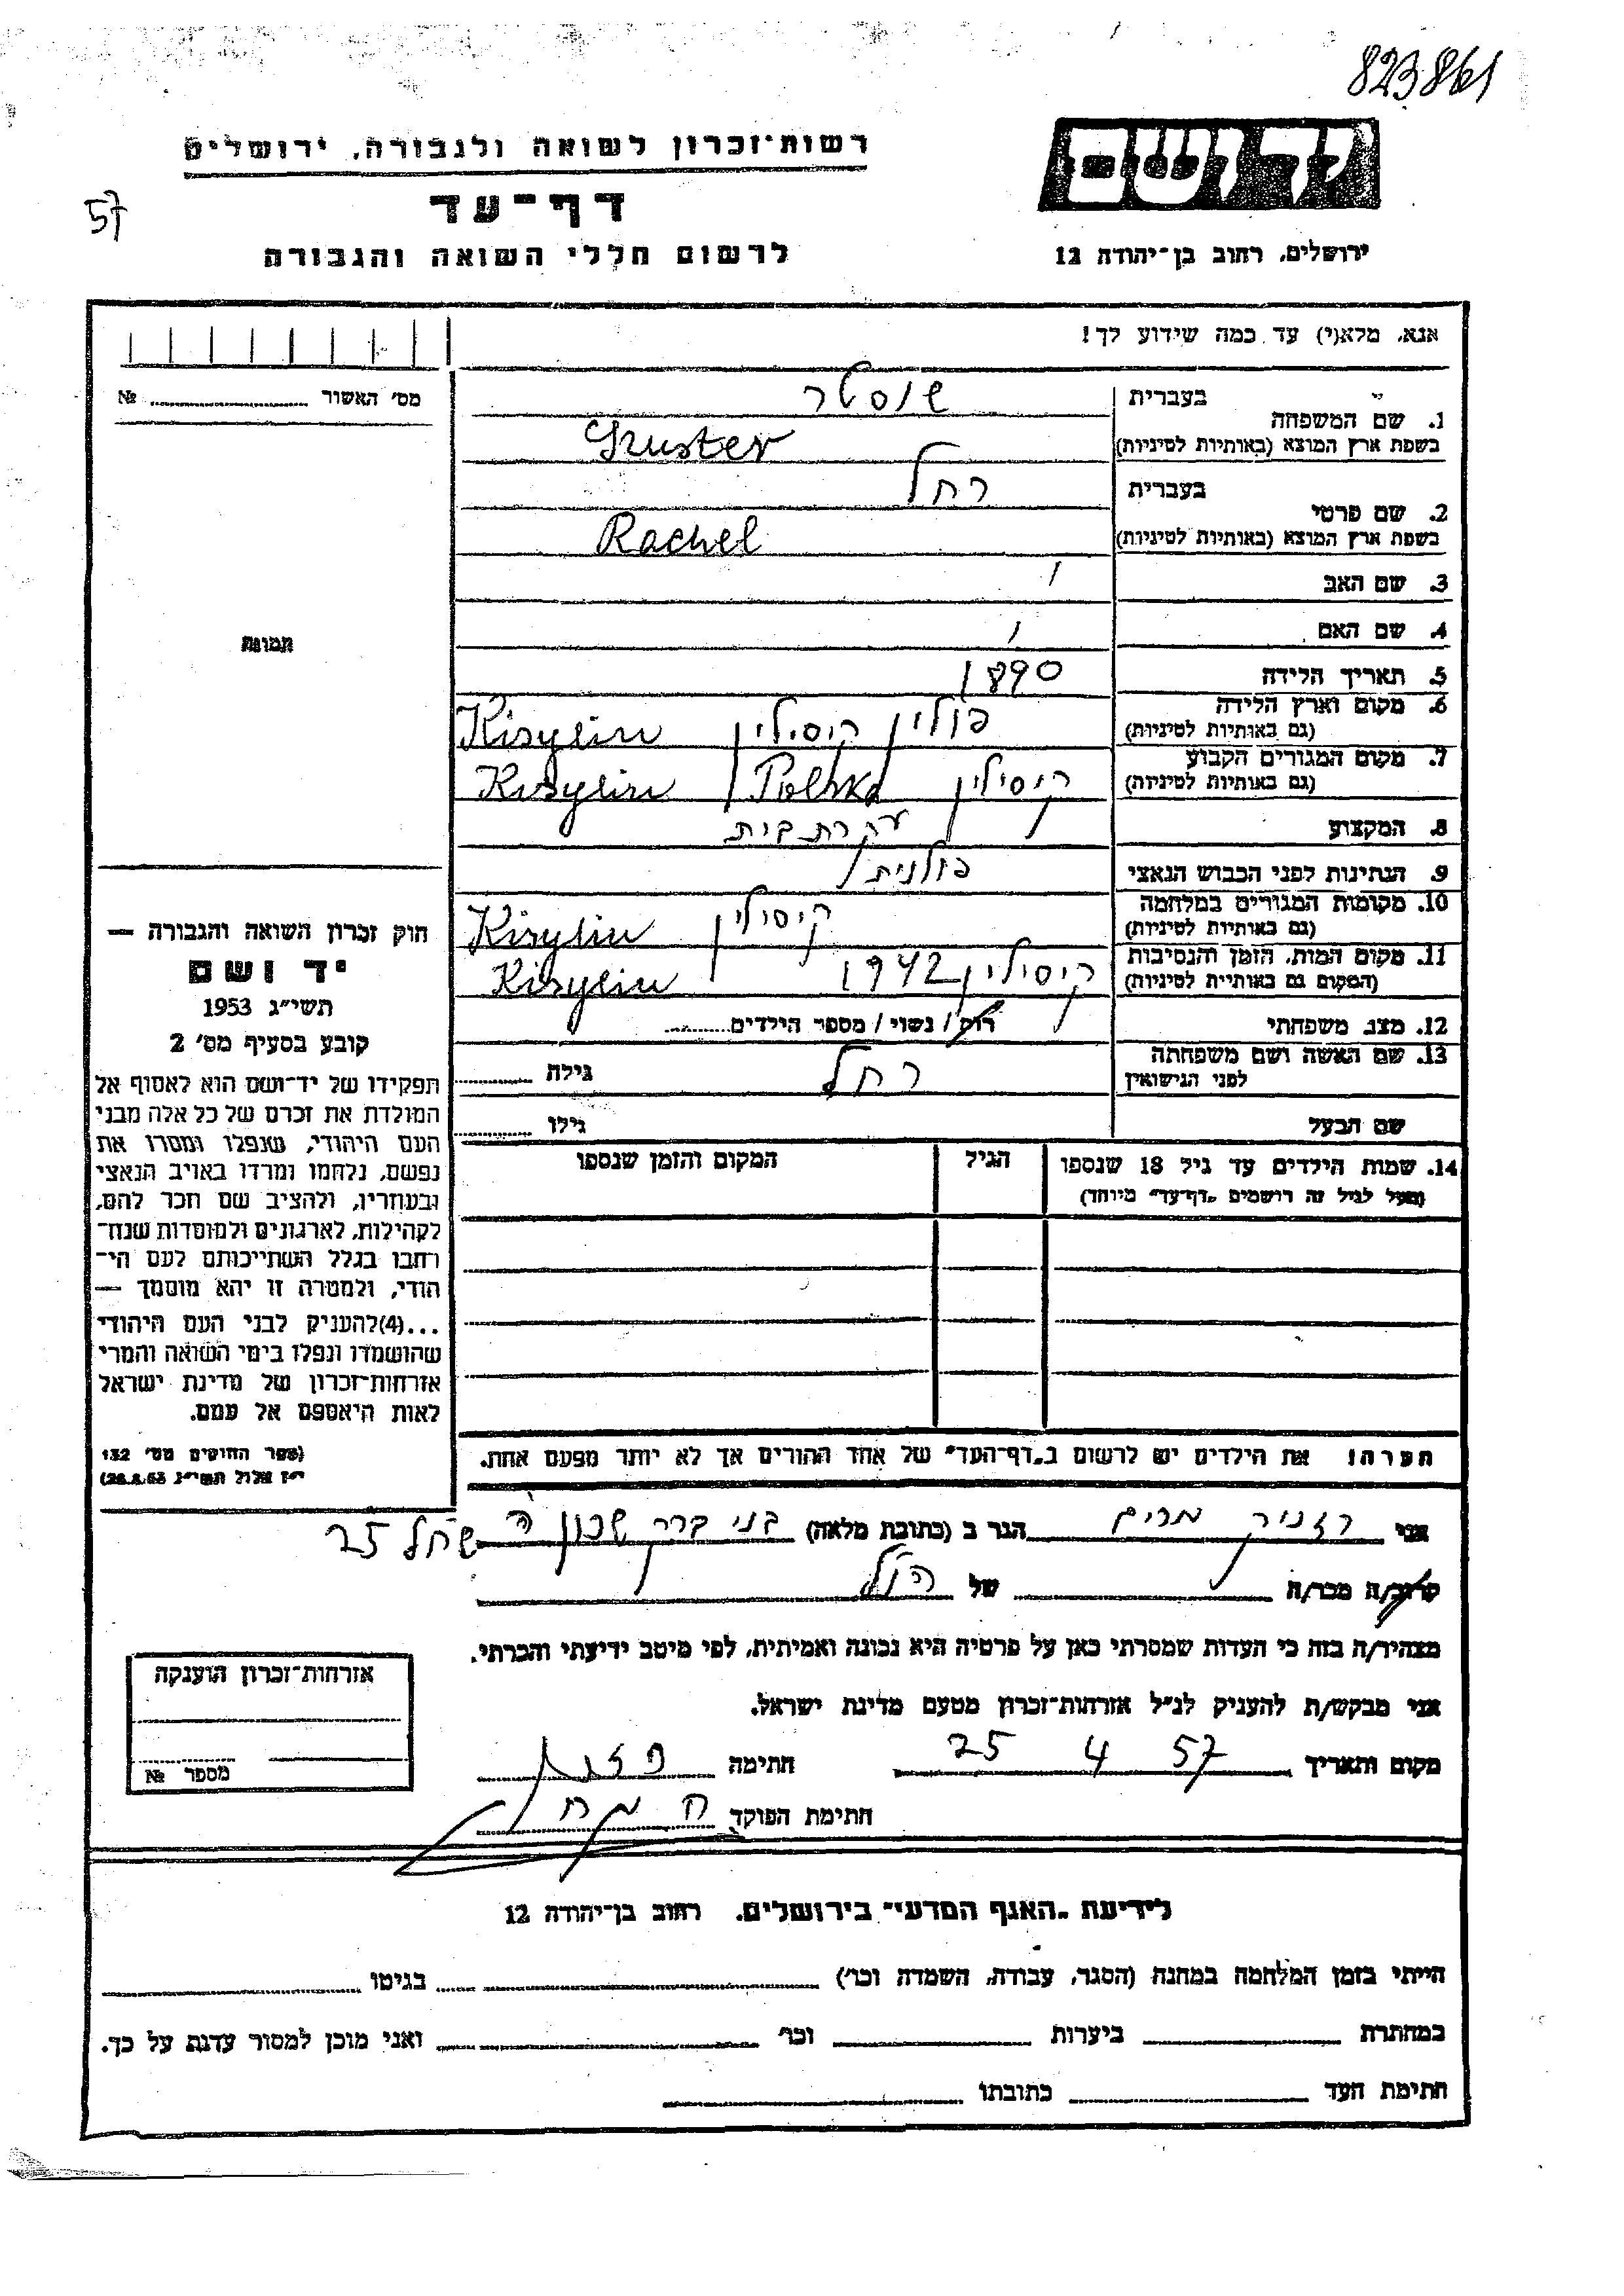 823861
רשות־זכרון לשואה ולגבורה, ירושלים
דף־עד
לרשום חללי השואה והגבורה
57
ירושלים, רחוב בן־יהודה 12
אנא, מלא(י) עד כמה שידוע לך!
מס׳ האשור № 
1. שם המשפחה
בעברית שוסטר
בשפת ארץ המוצא (באותיות לטיניות) Szuster
2. שם פרטי
בעברית רחל
בשפת ארץ המוצא (באותיות לטיניות) Rachel
3. שם האב /
4. שם האם /
5. תאריך הלידה 1890
6. מקום וארץ הלידה (גם באותיות לטיניות) פולין קיסילין Kisylin
7. מקום המגורים הקבוע (גם באותיות לטיניות) קיסילין Polska / Kisylin
8. המקצוע עקרת בית
9. הנתינות לפני הכבוש הנאצי פולנית
10. מקומות המגורים במלחמה (גם באותיות לטיניות) קיסילין Kisylin
11. מקום המות, הזמן והנסיבות (המקום גם באותיות לטיניות) קיסילין 1942 Kisylin
12. מצב משפחתי רוק / נשוי / מספר הילדים
13. שם האשה ושם משפחתה לפני הנישואין רחל גילה
שם הבעל גילו
14. שמות הילדים עד גיל 18 שנספו
(מעל לגיל זה רושמים „דף־עד” מיוחד)
הגיל
המקום והזמן שנספו
תמונה
חוק זכרון השואה והגבורה —
יד ושם
תשי״ג 1953
קובע בסעיף מס׳ 2
תפקידו של יד־ושם הוא לאסוף אל
המולדת את זכרם של כל אלה מבני
העם היהודי, שנפלו ומסרו את
נפשם, נלחמו ומרדו באויב הנאצי
ובעוזריו, ולהציב שם וזכר להם,
לקהילות, לארגונים ולמוסדות שנח־
רבו בגלל השתייכותם לעם הי־
הודי, ולמטרה זו יהא מוסמך —
...(4)להעניק לבני העם היהודי
שהושמדו ונפלו בימי השואה והמרי
אזרחות־זכרון של מדינת ישראל
לאות היאספם אל עמם.
(ספר החוקים מס׳ 132
י״ז אלול תשי״ג 28.8.53)
הערה! את הילדים יש לרשום ב„דף־העד” של אחד ההורים אך לא יותר מפעם אחת.
אני רזניק מרים הגר ב (כתובת מלאה) בני ברק שכון ה שחל 25
קרוב/ה מכר/ה של הנ״ל
מצהיר/ה בזה כי העדות שמסרתי כאן על פרטיה היא נכונה ואמיתית, לפי מיטב ידיעתי והכרתי.
אני מבקש/ת להעניק לנ״ל אזרחות־זכרון מטעם מדינת ישראל.
מקום ותאריך 25 4 57 חתימה
חתימת הפוקד
אזרחות־זכרון הוענקה
מספר №
לידיעת „האגף המדעי” בירושלים, רחוב בן־יהודה 12
הייתי בזמן המלחמה במחנה (הסגר, עבודה, השמדה וכר׳) בגיטו
במחתרת ביערות וכר׳ ואני מוכן למסור עדות על כך.
חתימת העד כתובתו